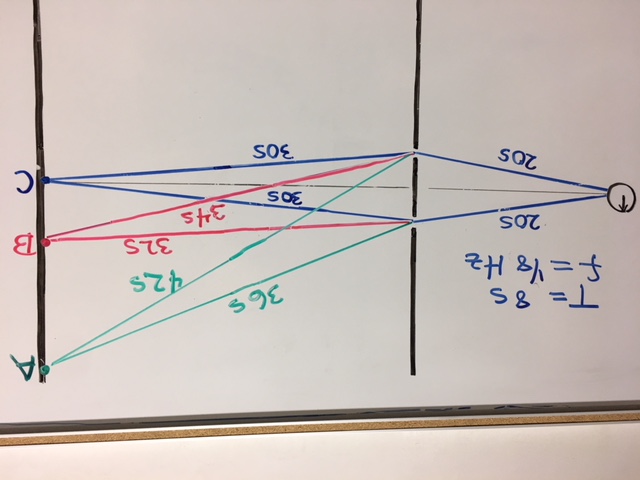 T = 8s
f = 1/8 Hz
20s
20s
36s
42s
32s
34s
30s
30s
A
B
C